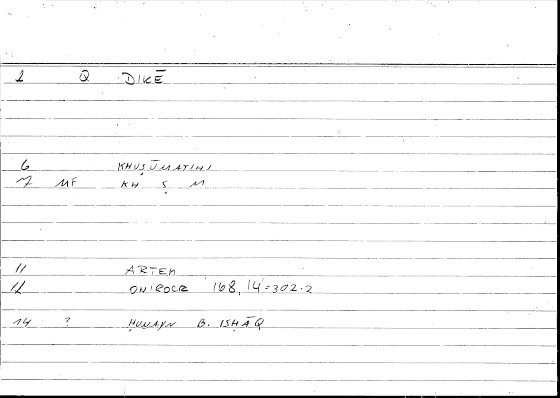 1 Q DIKĒ
6 KHUṢŪMATIHI
7 MF KH Ṣ M
11 ARTEM
12 ONIROCR 168, 14=302.2
14 ? ḤUNAYN B. ISḤĀQ